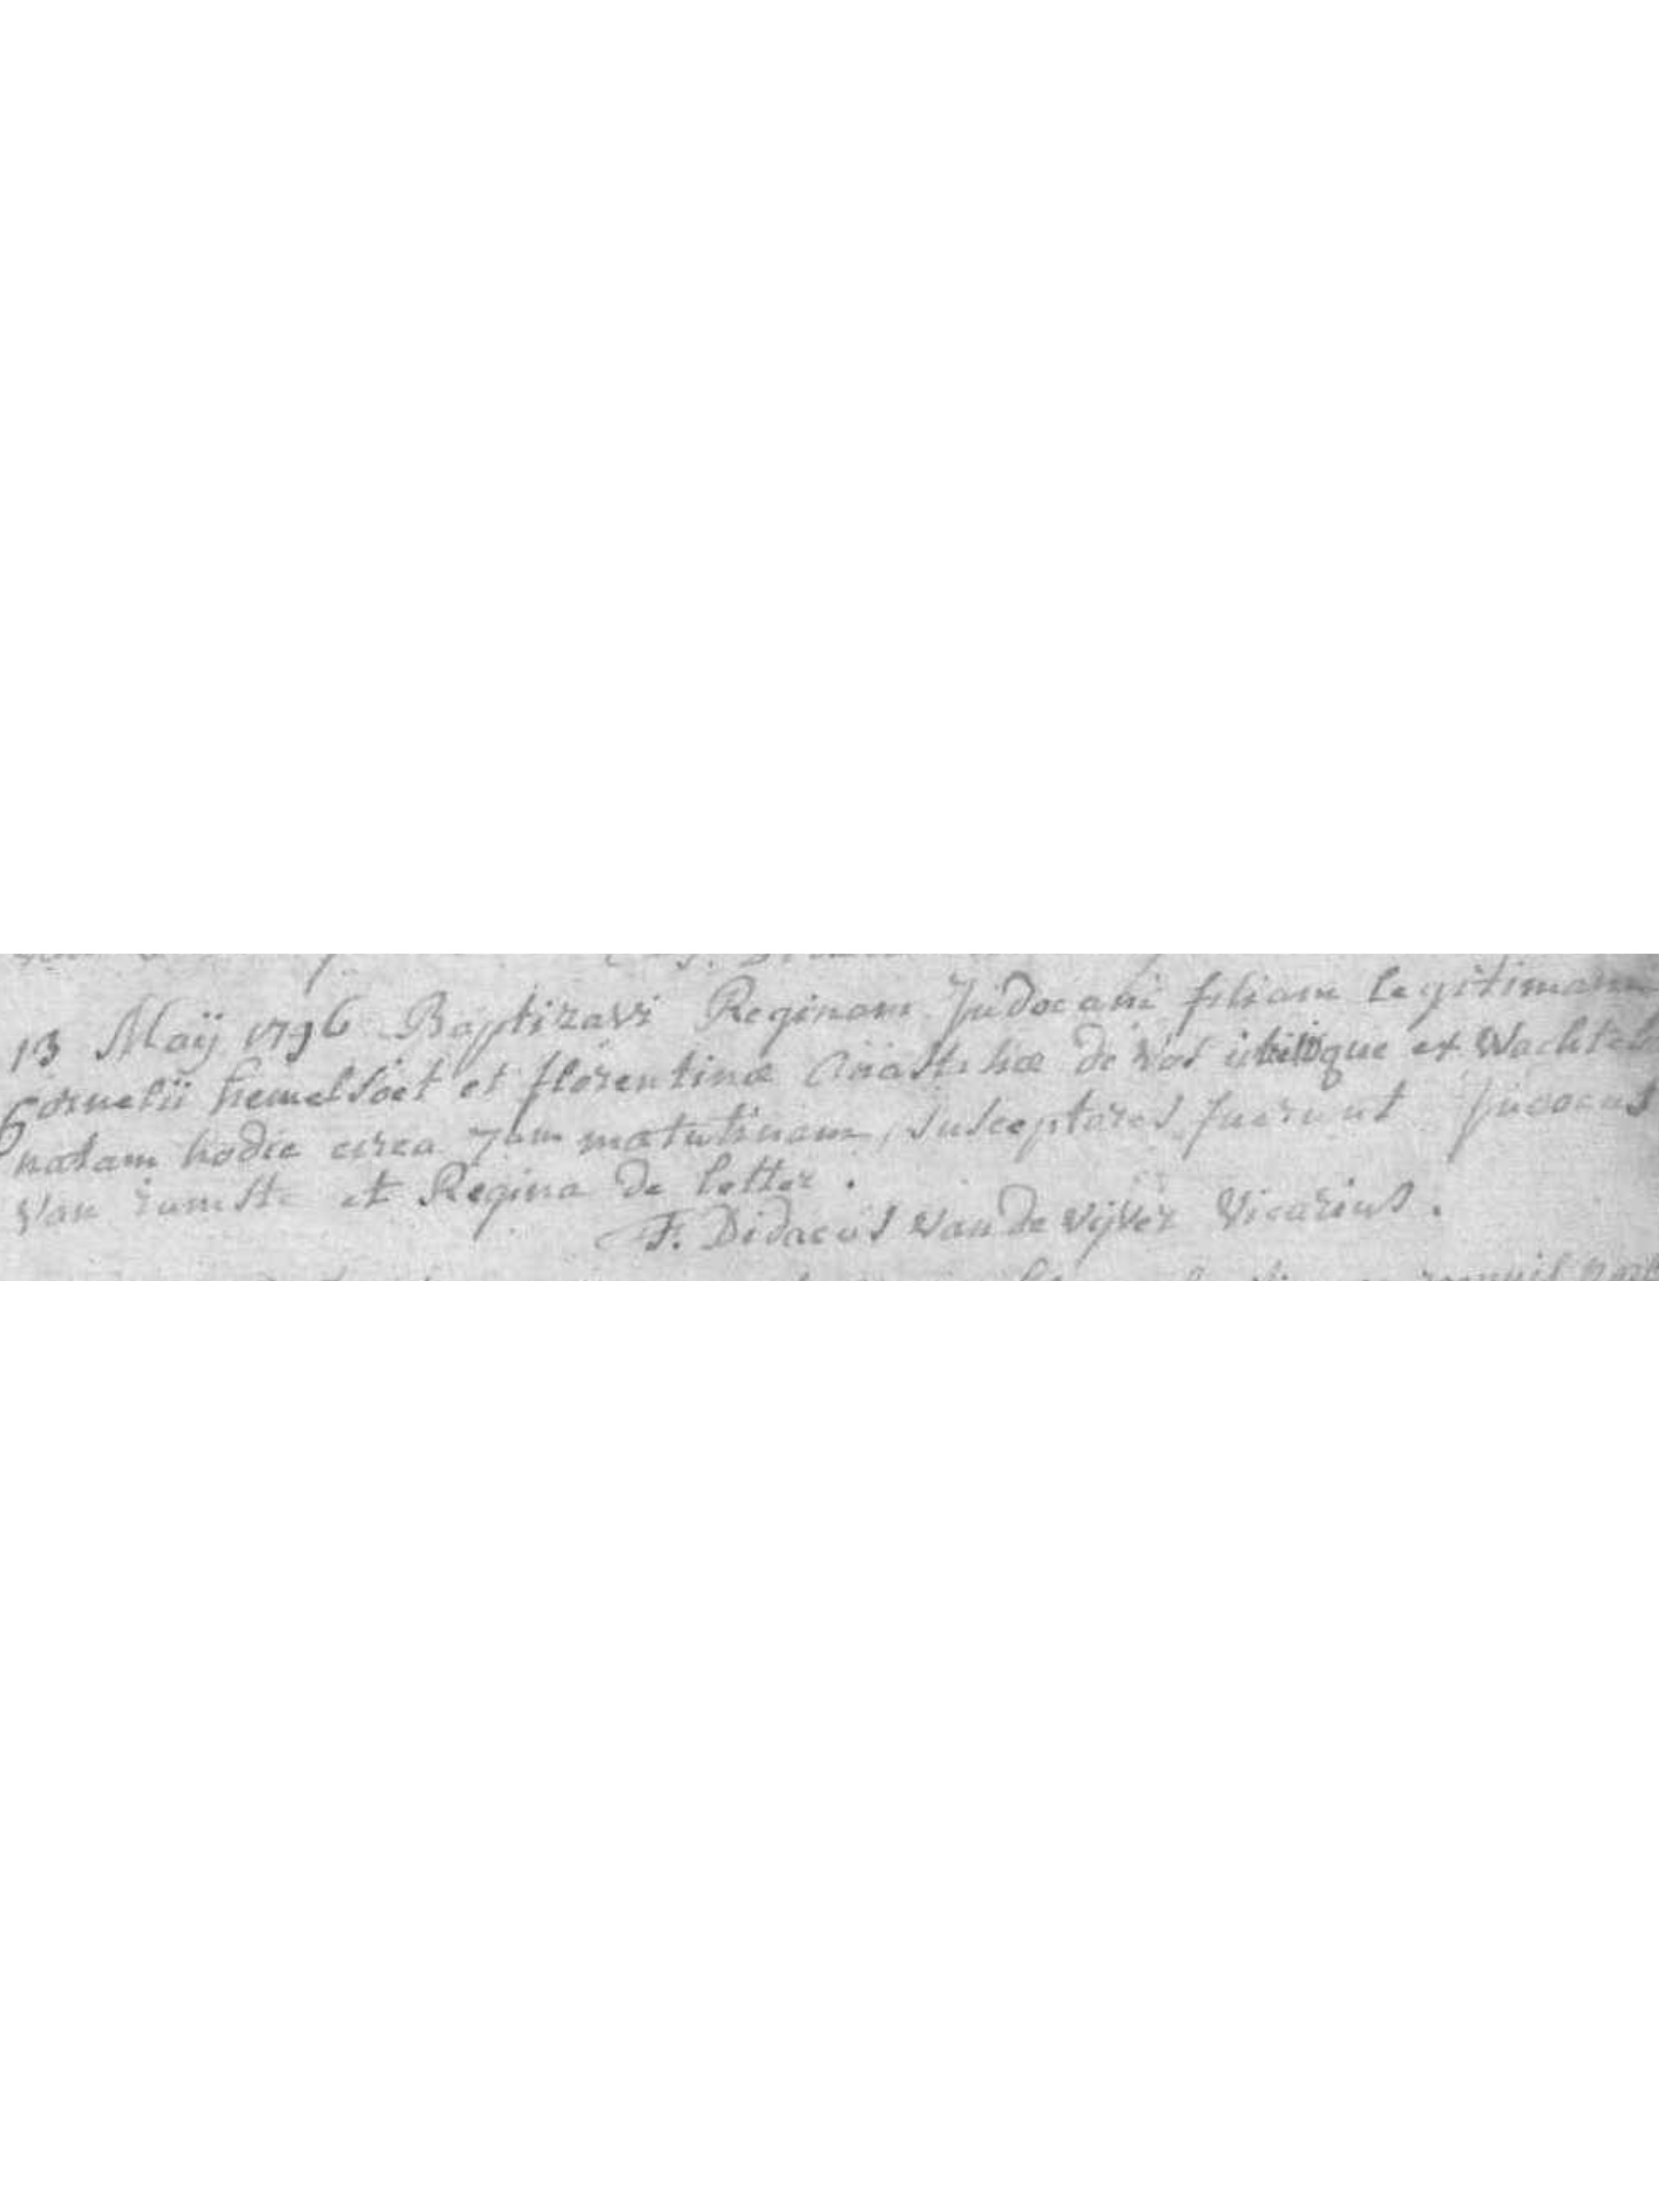 13 Maÿ 1796 Baptizavi Reginam Judocam filiam legitimam
Cornelii hemelsoet et florentinæ de Vos que ex Wachteb
natam hodie circa 7am matutinam, susceptores fuerunt Judocus
Van et Regina de letter.
F. Didacus Van de Vijver Vicarius.